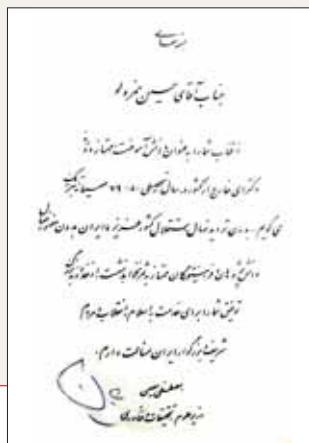 بسمه تعالی
جناب آقای حسین
انتخاب شما را به عنوان دانش آموخته ممتاز دوره
دکترای خارج از کشور در سال تحصیلی ۸۰-۷۹ صمیمانه تبریک
می گویم. بدون تردید استقلال کشور عزیز ما ایران بدون حضور
دانش پژوهان و فرهیختگان ممتاز به ثمر نخواهد نشست. از خداوند بزرگ
توفیق شما را برای خدمت به اسلام، انقلاب و مردم
شریف و بزرگوار ایران مسئلت دارم.
مصطفی معین
وزیر علوم، تحقیقات و فناوری